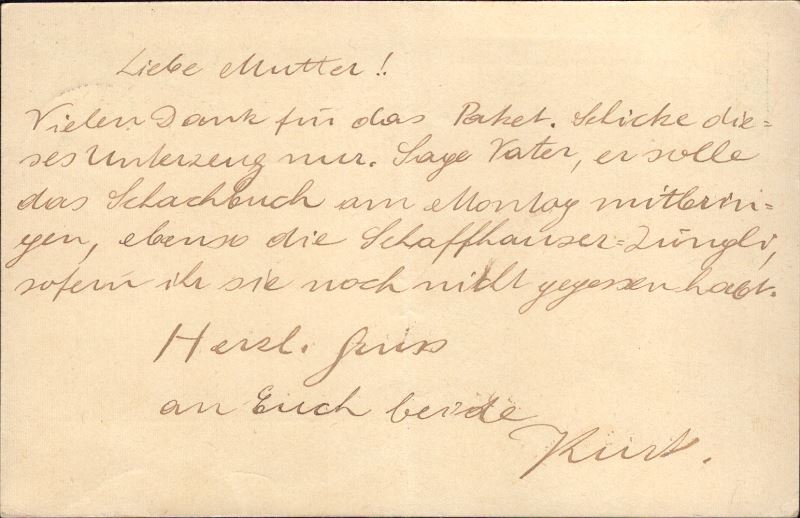 Liebe Mutter!
Vielen Dank für das Paket. Schicke die=
ses Unterzeug nur. Sage Vater, er solle
das Schachbuch am Montag mitbrin=
gen, ebenso die Schaffhauser=Züngli,
sofern ihr sie noch nicht gegessen habt.
Herzl. Gruss
an Euch beide
Kurt.